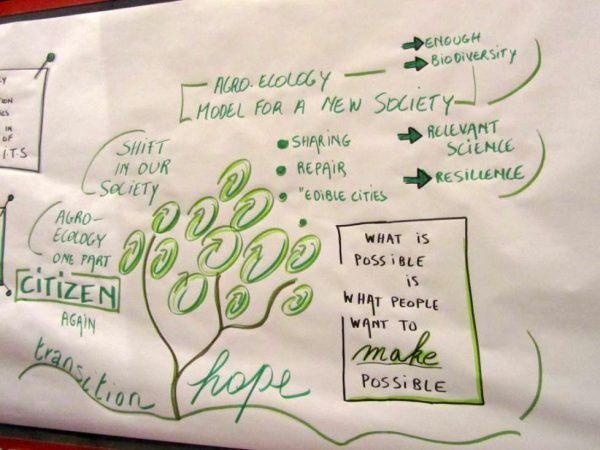 ON
IN
OF
I.T.S
AGRO-ECOLOGY
MODEL FOR A NEW SOCIETY
ENOUGH
BIODIVERSITY
RELEVANT
SCIENCE
RESILLENCE
SHARING
REPAIR
"EDIBLE CITIES
SHIFT
IN OUR
SOCIETY
AGRO-
ECOLOGY
ONE PART
CITIZEN
AGAIN
transition
hope
WHAT IS
POSSIBLE
IS
WHAT PEOPLE
WANT TO
make
POSSIBLE